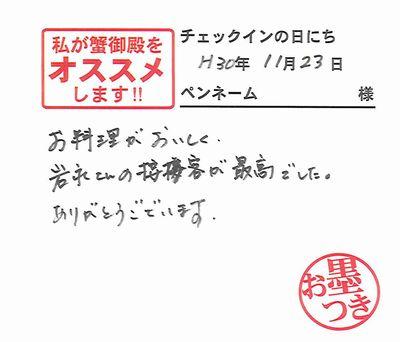 私が蟹御殿を
オススメ
します!!
チェックインの日にち
H30年 11月23日
ペンネーム 様
お料理がおいしく、
岩永さんの接客が最高でした。
ありがとうございます.
お墨つき